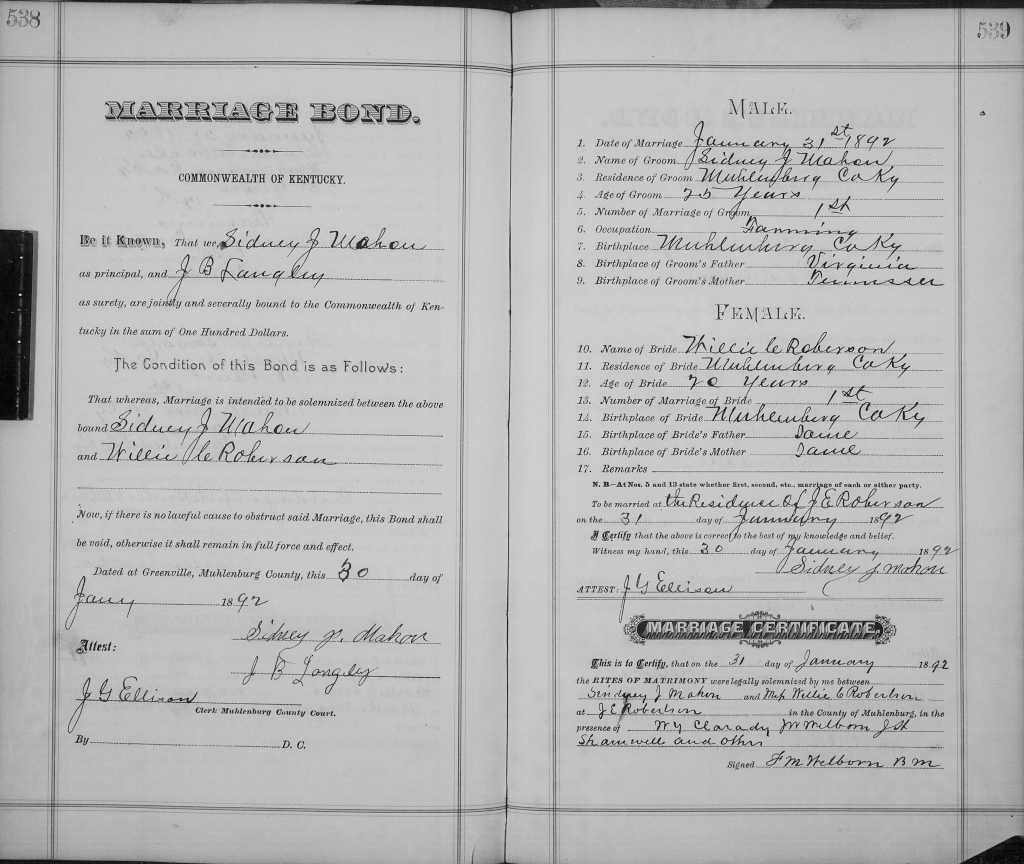 538
MARRIAGE BOND.
COMMONWEALTH OF KENTUCKY.
Be it Known, That we, Sidney J Mahon
as principal, and J B Langley
as surety, are jointly and severally bound to the Commonwealth of Ken-
tucky in the sum of One Hundred Dollars.
The Condition of this Bond is as Follows:
That whereas, Marriage is intended to be solemnized between the above
bound Sidney J Mahon
and Willie C Roberson
Now, if there is no lawful cause to obstruct said Marriage, this Bond shall
be void, otherwise it shall remain in full force and effect.
Dated at Greenville, Muhlenburg County, this 30 day of
Jany 1892
Attest:
Sidney J. Mahon
J B Langley
J G Ellison
Clerk Muhlenburg County Court.
By D. C.
539
MALE.
1. Date of Marriage January 31st 1892
2. Name of Groom Sidney J Mahon
3. Residence of Groom Muhlenberg Co Ky
4. Age of Groom 25 Years
5. Number of Marriage of Groom 1st
6. Occupation Farming
7. Birthplace Muhlenberg Co Ky
8. Birthplace of Groom's Father Virginia
9. Birthplace of Groom's Mother Tennessee
FEMALE.
10. Name of Bride Willie C Roberson
11. Residence of Bride Muhlenberg Co Ky
12. Age of Bride 20 Years
13. Number of Marriage of Bride 1st
14. Birthplace of Bride Muhlenberg Co Ky
15. Birthplace of Bride's Father Same
16. Birthplace of Bride's Mother Same
17. Remarks
N. B.—At Nos. 5 and 13 state whether first, second, etc., marriage of each or either party.
To be married at the Residence of J E Roberson
on the 31 day of January 1892
I Certify that the above is correct to the best of my knowledge and belief.
Witness my hand, this 30 day of January 1892
Sidney J. Mahon
ATTEST: J G Ellison
MARRIAGE CERTIFICATE.
This is to Certify, that on the 31 day of January 1892
the RITES OF MATRIMONY were legally solemnized by me between
Sindney J Mahon and Miss Willie C Robertson
at J E Robertson in the County of Muhlenburg, in the
presence of W Y Clarady J W Welborn
Shamwell and others
Signed F M Welborn B M